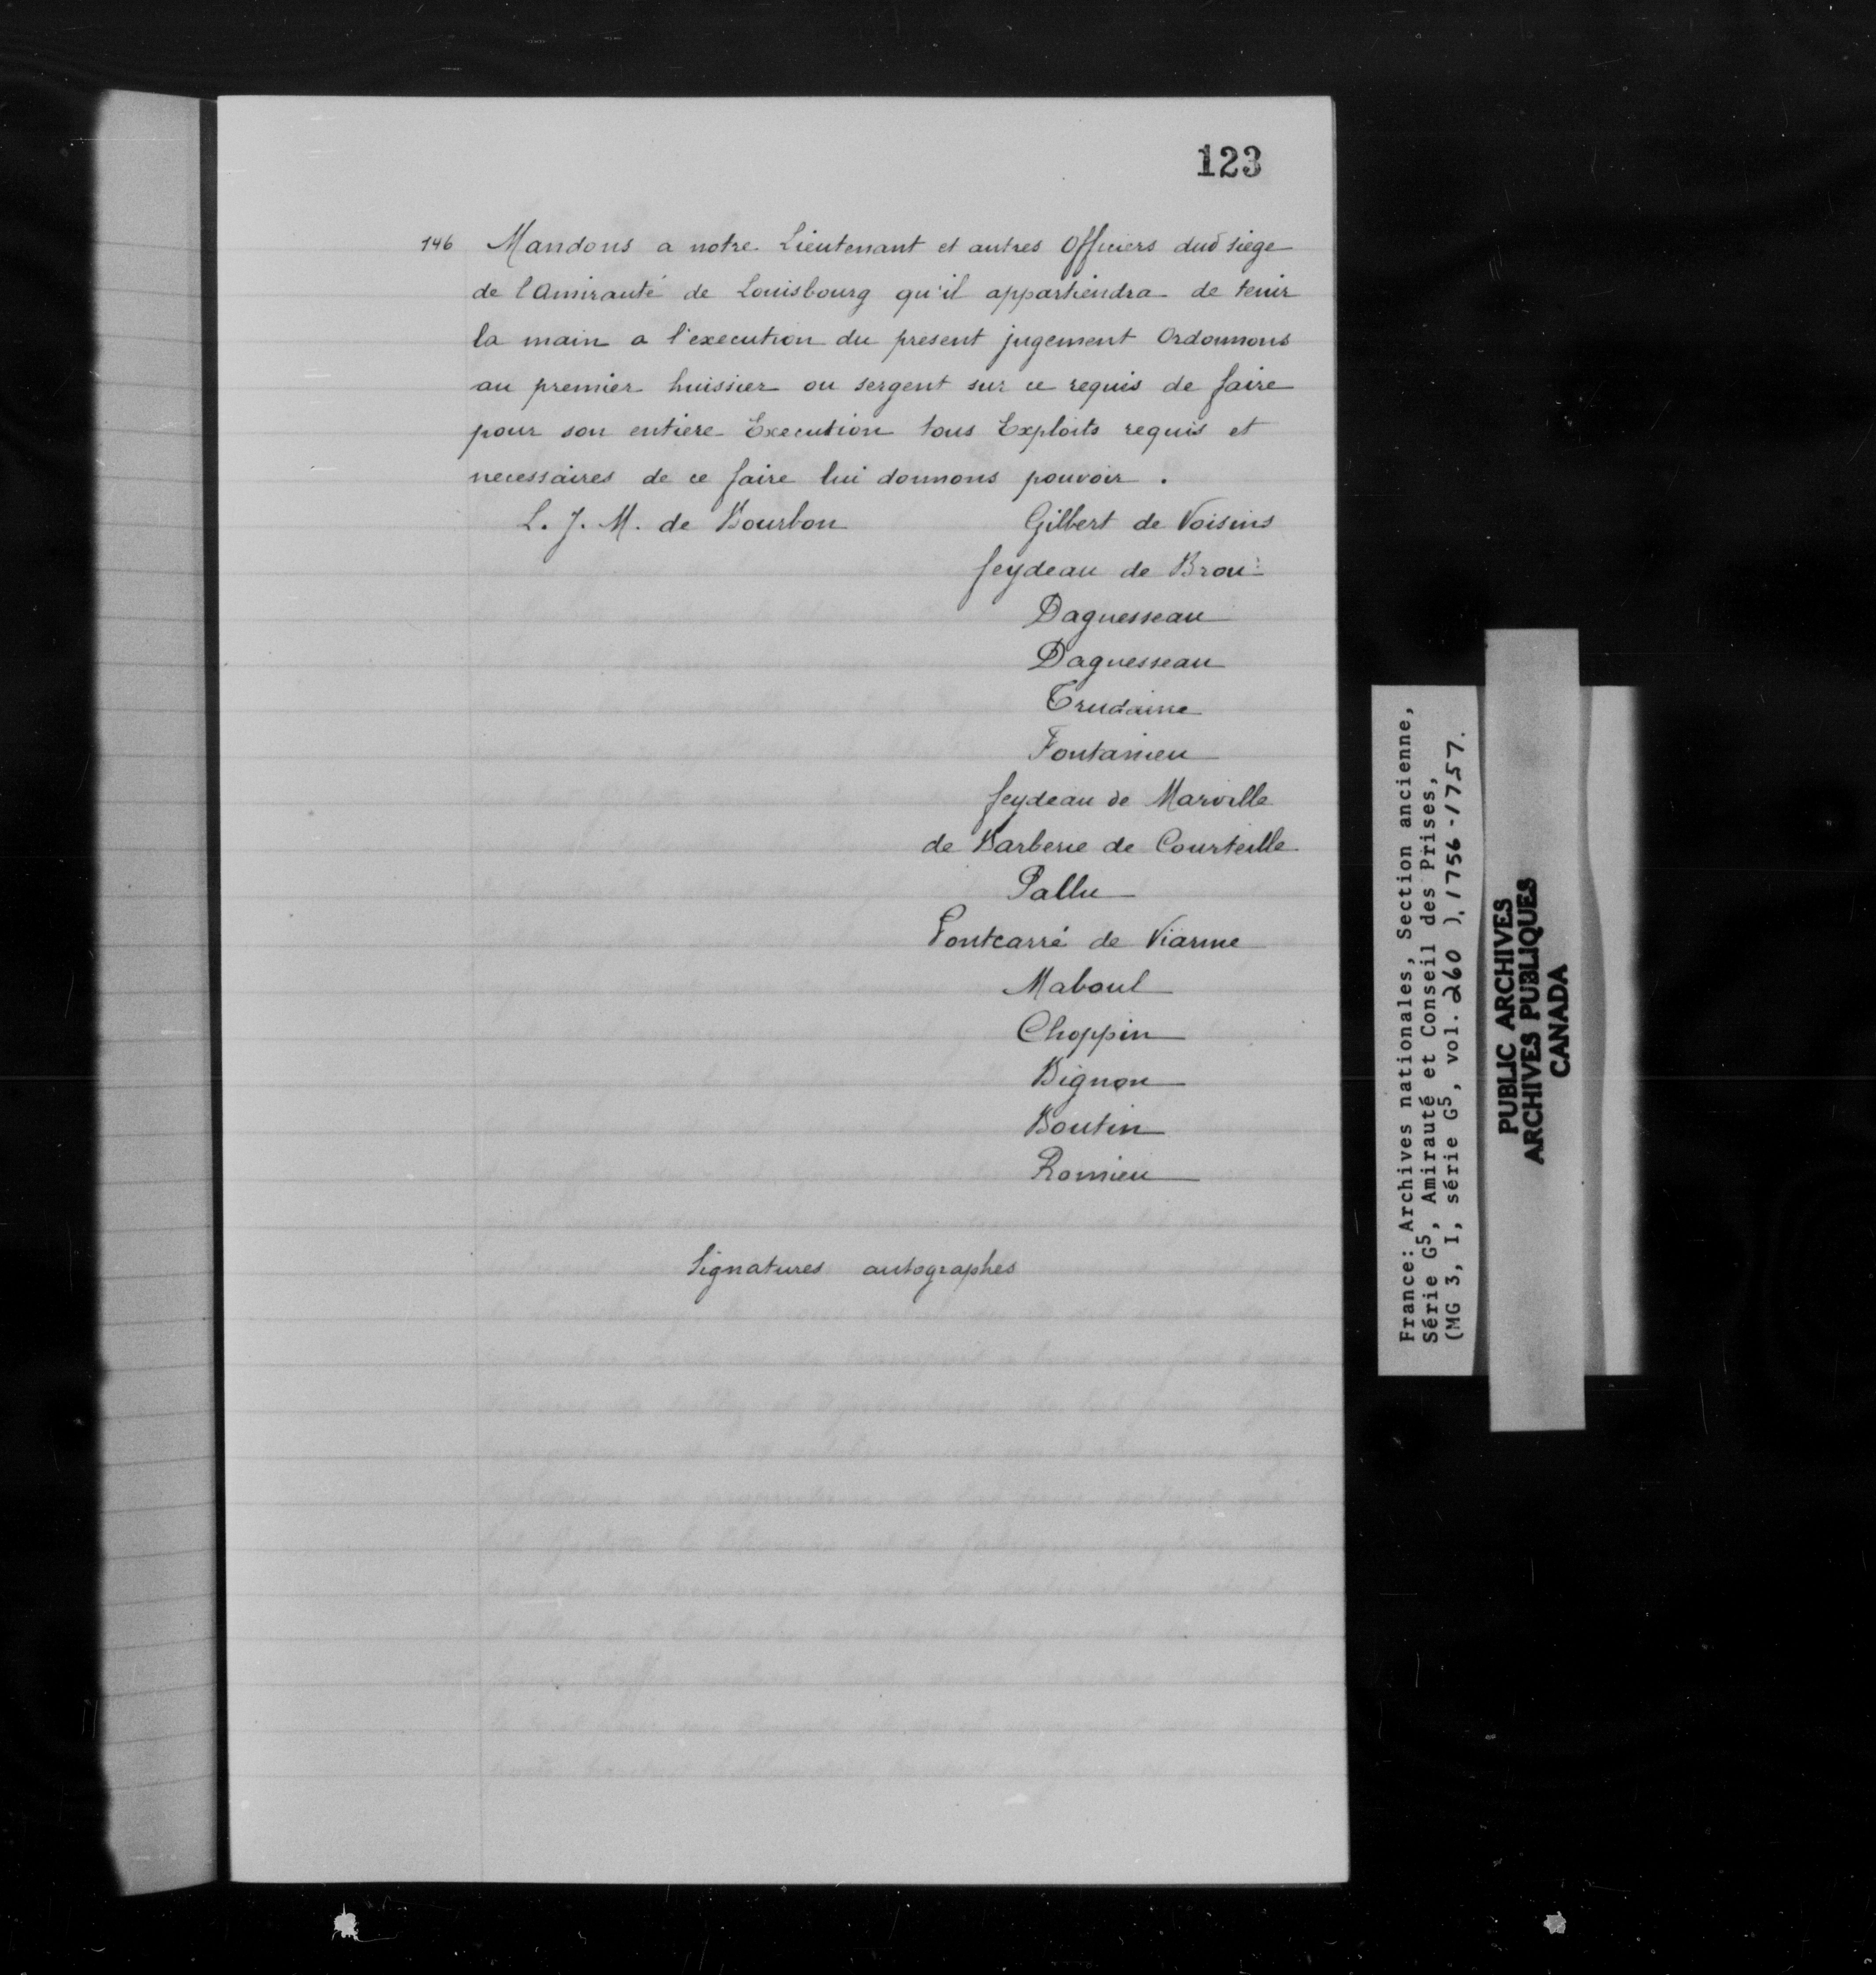 123
146 Mandons a notre Lieutenant et autres Officiers dud siege
de l'Amirauté de Louisbourg qu'il appartiendra de tenir
la main a l'execution du present jugement Ordonnons
au premier huissier ou sergent sur ce requis de faire
pour son entiere Execution tous Exploits requis et
necessaires de ce faire lui donnons pouvoir.
L. J. M. de Bourbon Gilbert de Voisins
feydeau de Brou
Daguesseau
Daguesseau
Trudaine
Fontanieu
feydeau de Marville
de Barberie de Courteille
Pallu
Pontcarré de Viarme
Maboul
Choppin
Bignon
Boutin
Romieu
Signatures autographes
France: Archives nationales, Section ancienne,
Série G5, Amirauté et Conseil des Prises,
(MG 3, I, série G5, vol. 260 ), 1756-1757.
PUBLIC ARCHIVES
ARCHIVES PUBLIQUES
CANADA